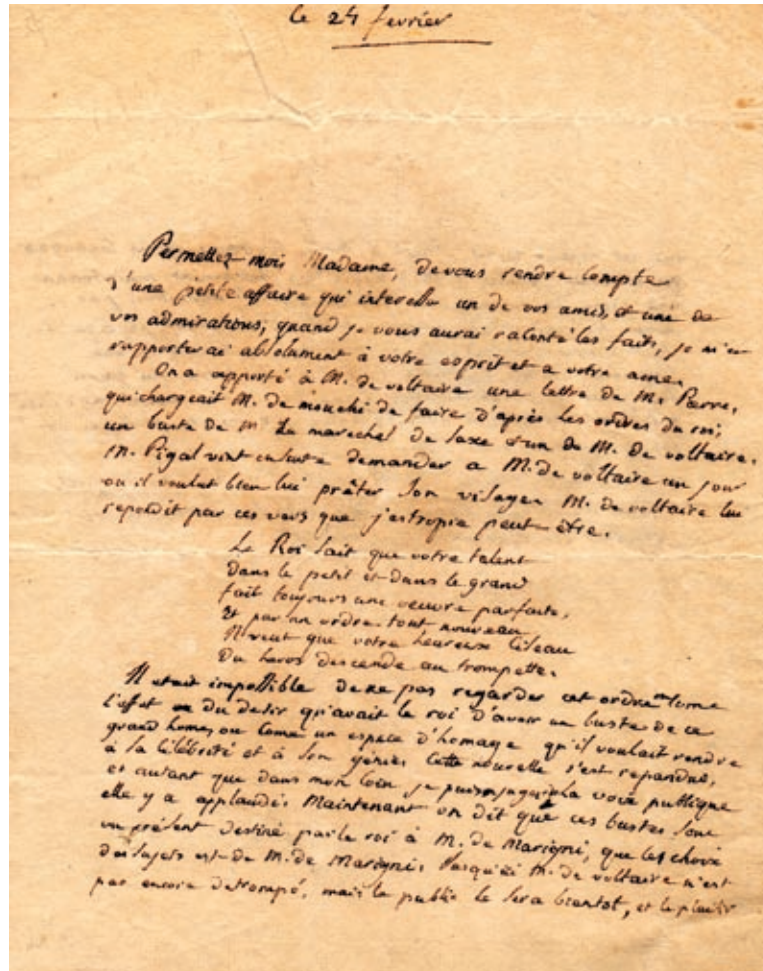 le 24 fevrier
Permettez-mois Madame, de vous rendre compte
d'une petite affaire qui interesse un de vos amis, et une de
vos admirations, quand je vous aurai raconté les faits, je m'en
rapporterai absolument à votre esprit et a votre ame.
On a apporté à M. de voltaire une lettre de M.
qui chargeait M. de mouchi de faire d'après les ordres du roi,
un buste de M. Le marechal de saxe et un de M. de voltaire.
M. Pigal vint ensuite demander a M. de voltaire un jour
ou il voulut bien lui prêter son visage. M. de voltaire lui
repondit par ces vers que j'estropie peut-être.
Le Roi sait que votre talent
Dans le petit et dans le grand
fait toujours une oeuvre parfaite,
Et par un ordre tout nouveau
Il veut que votre heureux Ciseau
Du heros descende au trompette.
Il etait impossible de ne pas regarder cet ordre come
l'effet ou du desir qu'avait le roi d'avoir un buste de ce
grand home, ou come un espece d'homage qu'il voulait rendre
à sa Célébrité et à son génie. Cette nouvelle s'est repandue,
et autant que dans mon Coin je puis juger la voix publique
elle y a applaudi. Maintenant on dit que ces bustes sont
un présent destiné par le roi à M. de Marigni, que le choix
des sujets est de M. de Marigni. Jusqu'ici M. de voltaire n'est
pas encore detrompé, mais le public le sera bientot, et le plaisir